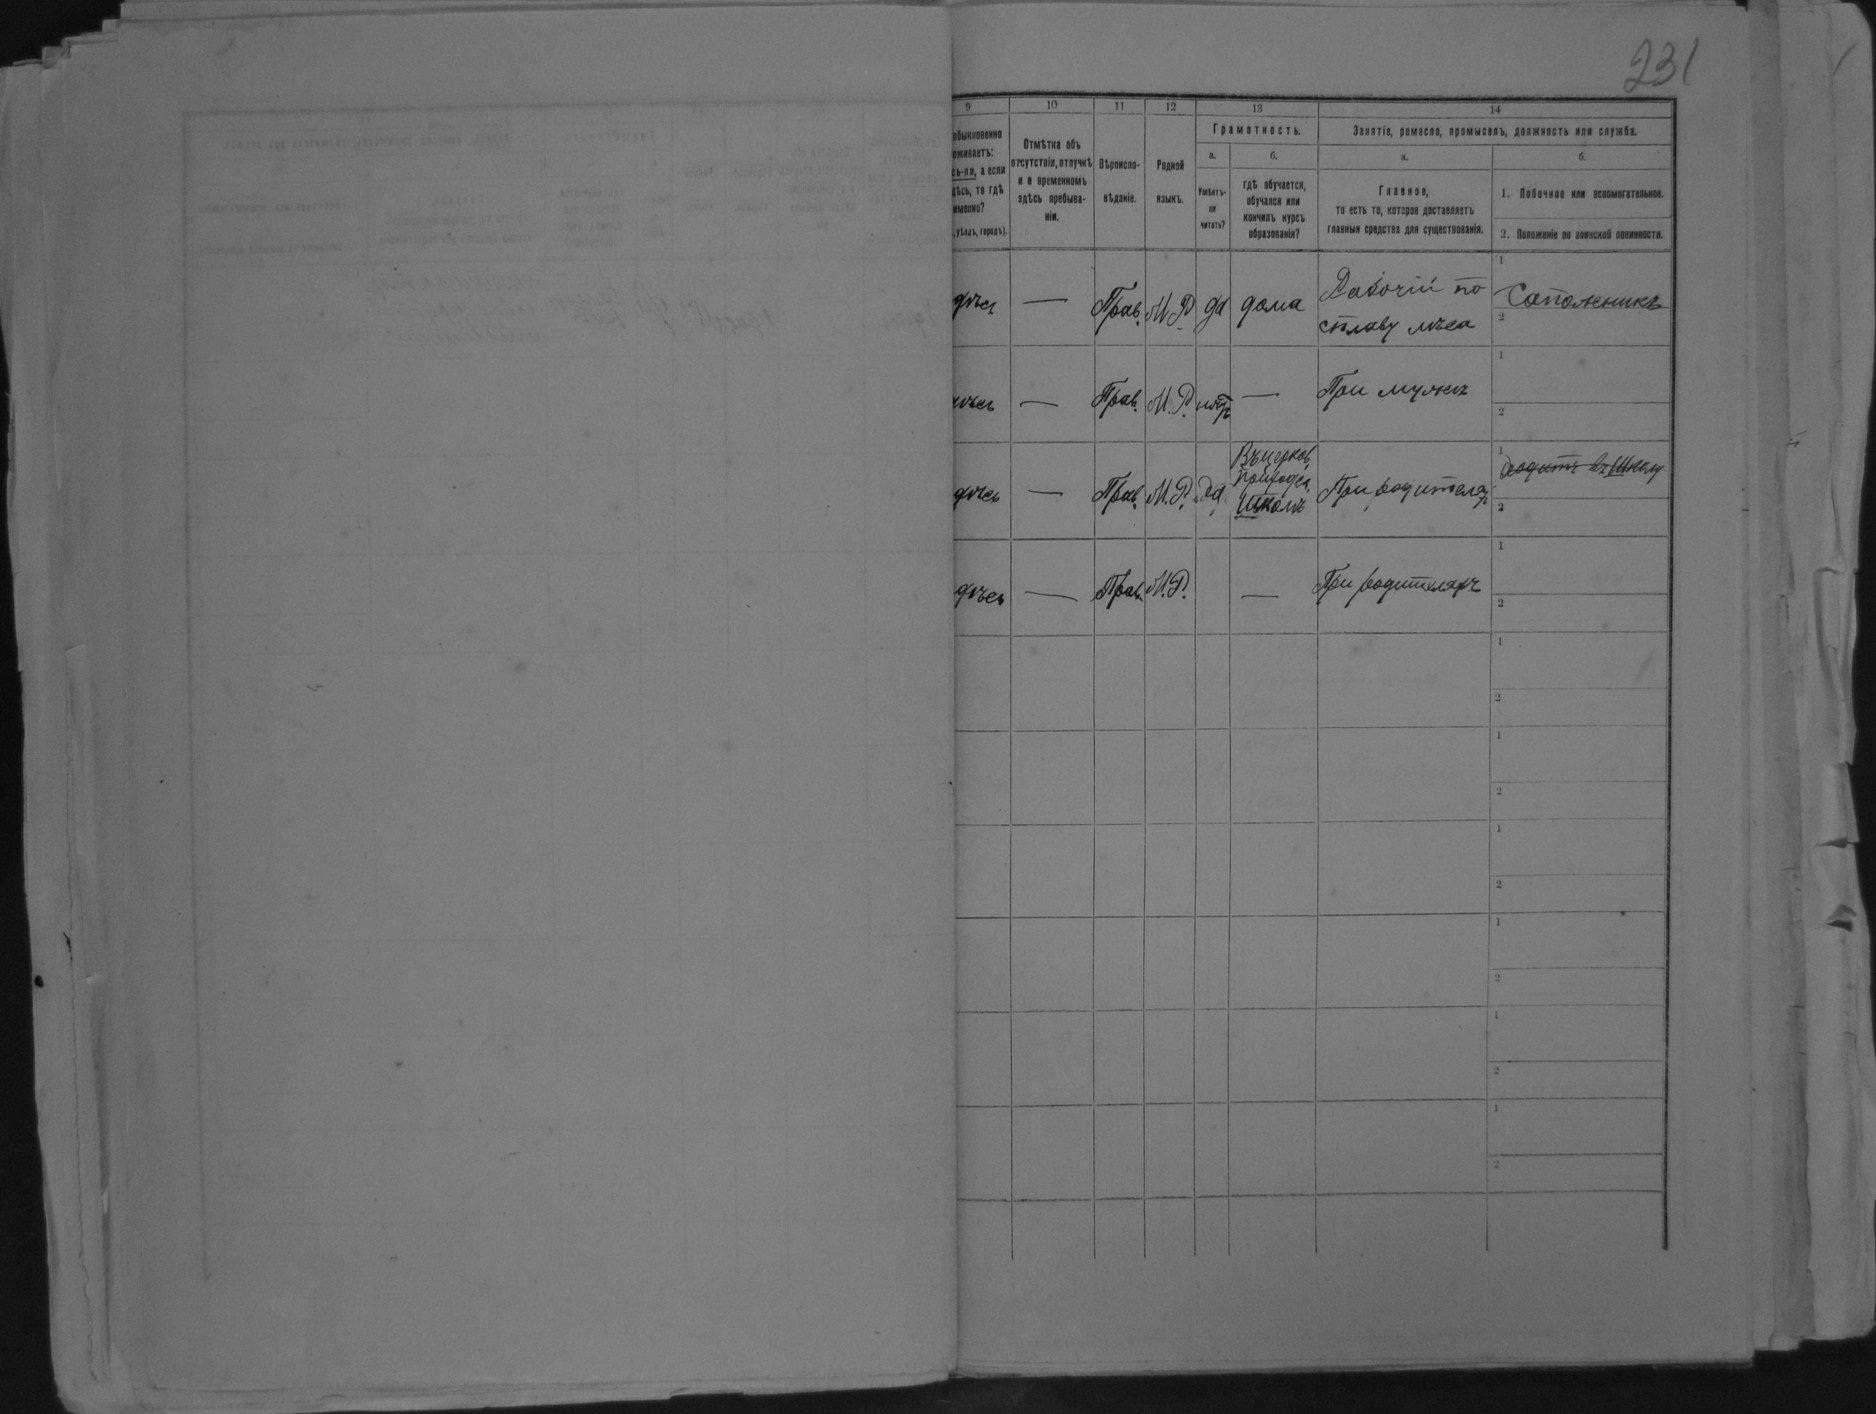 231
9 10 11 12 13 14
обыкновенно
оживаетъ:
сь-ли, а если
дѣсь, то гдѣ
именно?
, уѣздъ, городъ).
Отмѣтка объ
отсутствіи, отлучкѣ
и о временномъ
здѣсь пребыва-
ніи.
Вѣроиспо-
вѣданіе.
Родной
языкъ.
Грамотность.
а.
Умѣетъ-
ли
читать?
б.
гдѣ обучается,
обучался или
кончилъ курсъ
образованія?
Занятіе, ремесло, промыселъ, должность или служба.
а.
Главное,
то есть то, которое доставляетъ
главныя средства для существованія.
б.
1. Побочное или вспомогательное.
2. Положеніе по воинской повинности.
дѣсь — Прав. М.Р. да дома
Рабочій по
сплаву лѣса
1 Сапожникъ
2
дѣсь — Прав. М.Р. нѣтъ — При мужѣ
1
2
дѣсь — Прав. М.Р. да
Въ церков.
приходск.
Школѣ
При родителях
1 ходитъ въ Школу
2
дѣсь — Прав. М.Р. — При родителяхъ
1
2
1
2
1
2
1
2
1
2
1
2
1
2